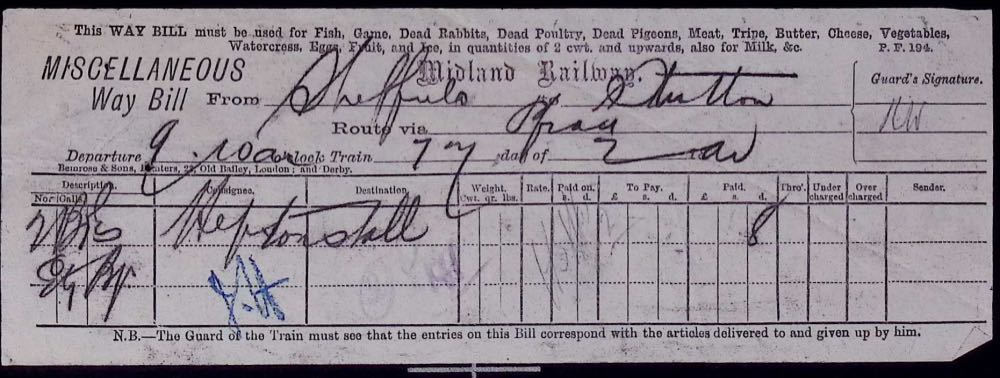 This WAY BILL must be used for Fish, Game, Dead Rabbits, Dead Poultry, Dead Pigeons, Meat, Tripe, Butter, Cheese, Vegetables,
Watercress, Eggs, Fruit, and Ice, in quantities of 2 cwt. and upwards, also for Milk, &c. P. F. 194.
MISCELLANEOUS Midland Railway. Guard's Signature.
Way Bill From Sheffield
Route via
Departure o'clock Train day of
Bemrose & Sons, Printers, 23, Old Bailey, London; and Derby.
Description. Consignee. Destination Weight. Rate. Paid on. To Pay. Paid. Thro'. Under charged Over charged Sender.
No. Galls. Cwt. qr. lbs. s. d. £ s. d. £ s. d.
Heptonstall 8
N.B.—The Guard of the Train must see that the entries on this Bill correspond with the articles delivered to and given up by him.